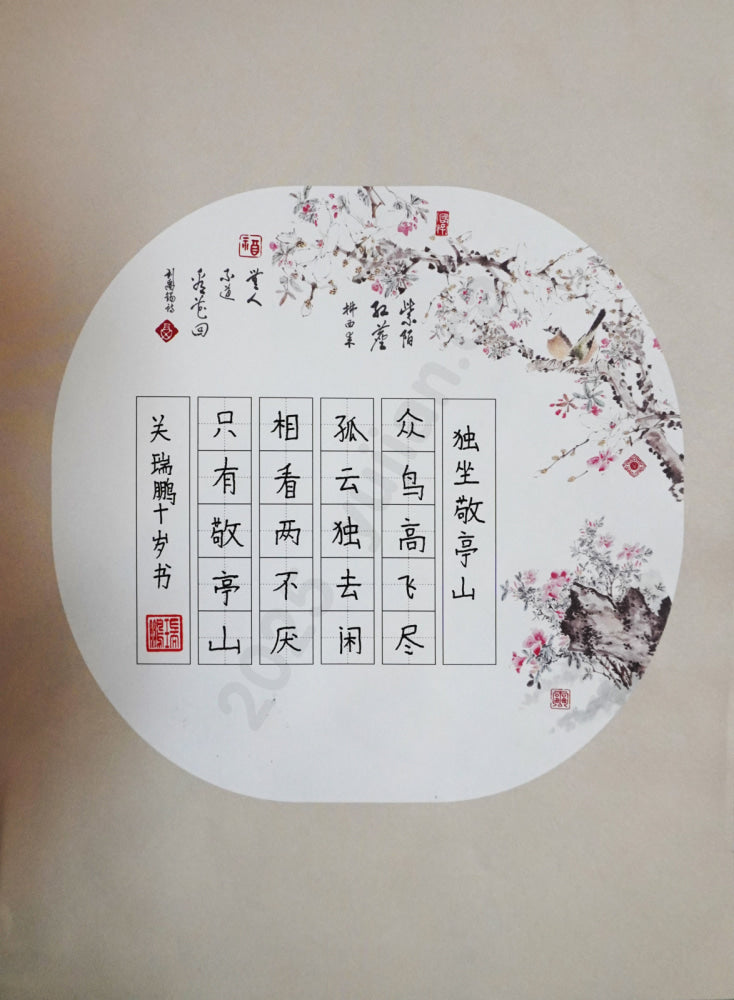 独坐敬亭山
众鸟高飞尽
孤云独去闲
相看两不厌
只有敬亭山
关瑞鹏十岁书
紫陌
红尘
拂面来
无人
不道
看花回
刘禹锡诗